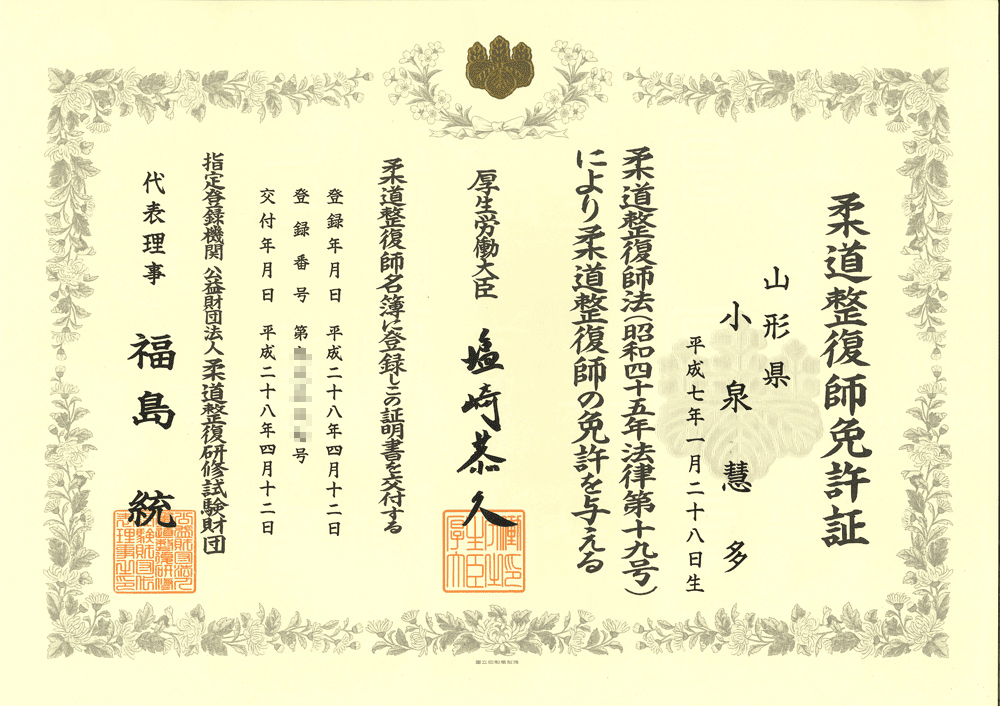 柔道整復師免許証
山形県
小泉慧多
平成七年一月二十八日生
柔道整復師法(昭和四十五年法律第十九号)
により柔道整復師の免許を与える
厚生労働大臣 塩崎恭久
柔道整復師名簿に登録しこの証明書を交付する
登録年月日 平成二十八年四月十二日
登録番号 第 号
交付年月日 平成二十八年四月十二日
指定登録機関 公益財団法人 柔道整復研修試験財団
代表理事 福島 統